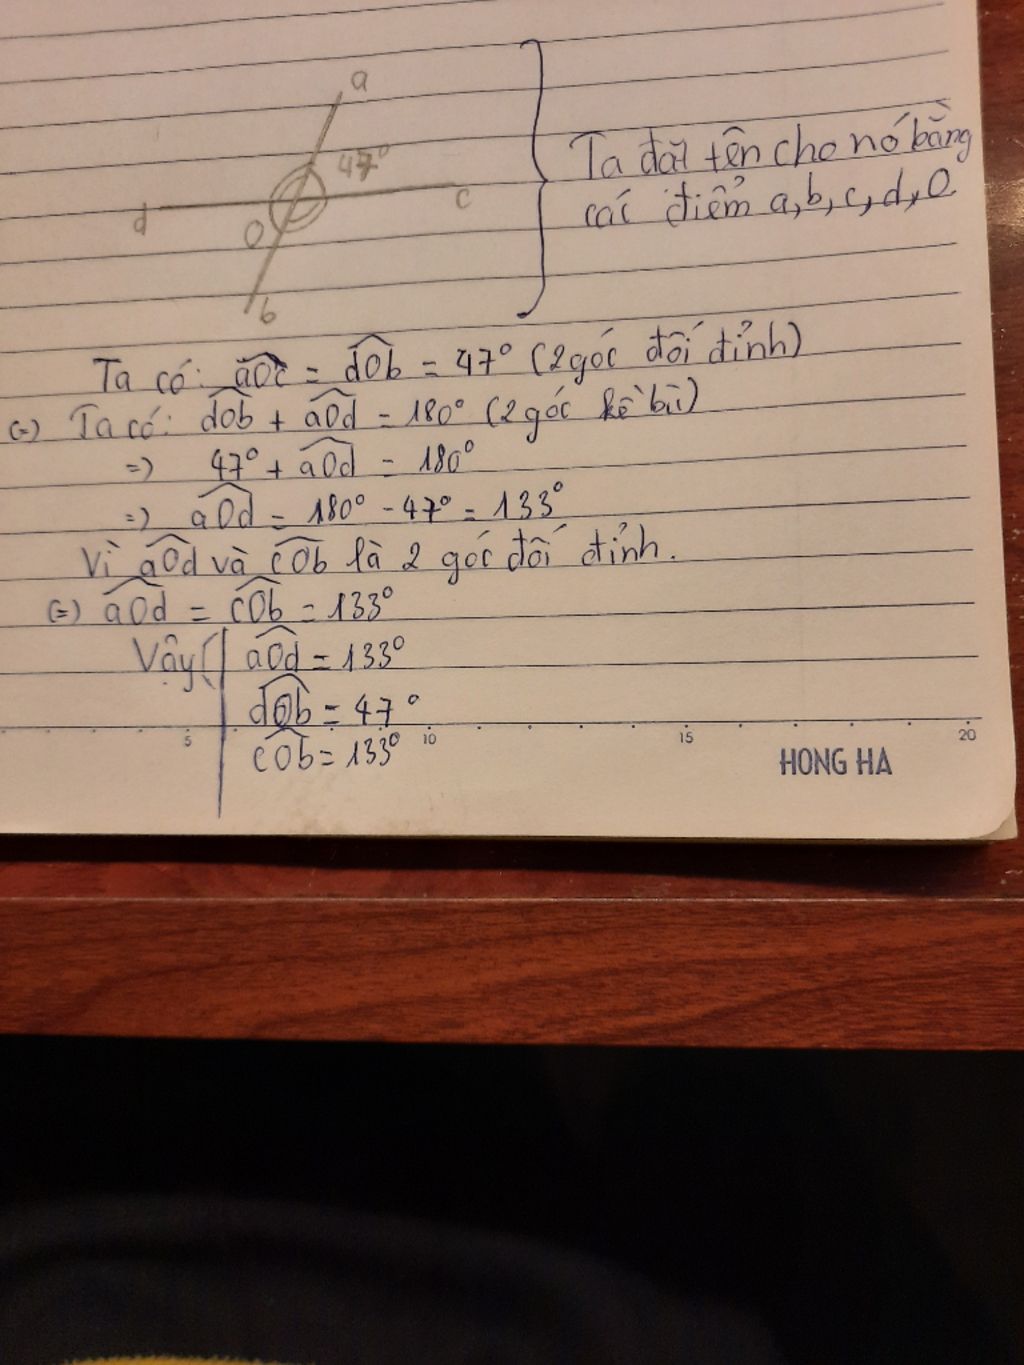 a
47°
d
c
O
b
Ta đặt tên cho nó bằng
các điểm a, b, c, d, O
Ta có: aOc = dOb = 47° (2 góc đối đỉnh)
(=) Ta có: dOb + aOd = 180° (2 góc kề bù)
=) 47° + aOd = 180°
=) aOd = 180° - 47° = 133°
Vì aOd và cOb là 2 góc đối đỉnh.
(=) aOd = cOb = 133°
Vậy aOd = 133°
dOb = 47°
cOb = 133°
5 10 15 20
HONG HA